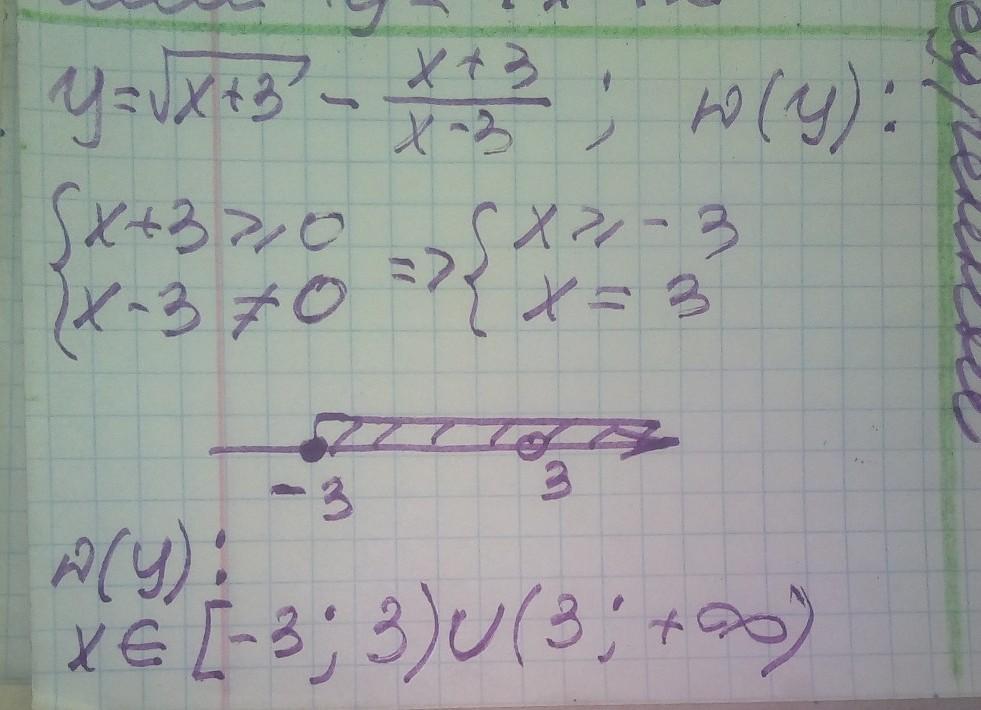 y=√x+3 - x+3/x-3 ; D(y):
{x+3⩾0 => {x⩾-3
{x-3≠0 {x=3
-3 3
D(y):
x∈[-3; 3)∪(3; +∞)